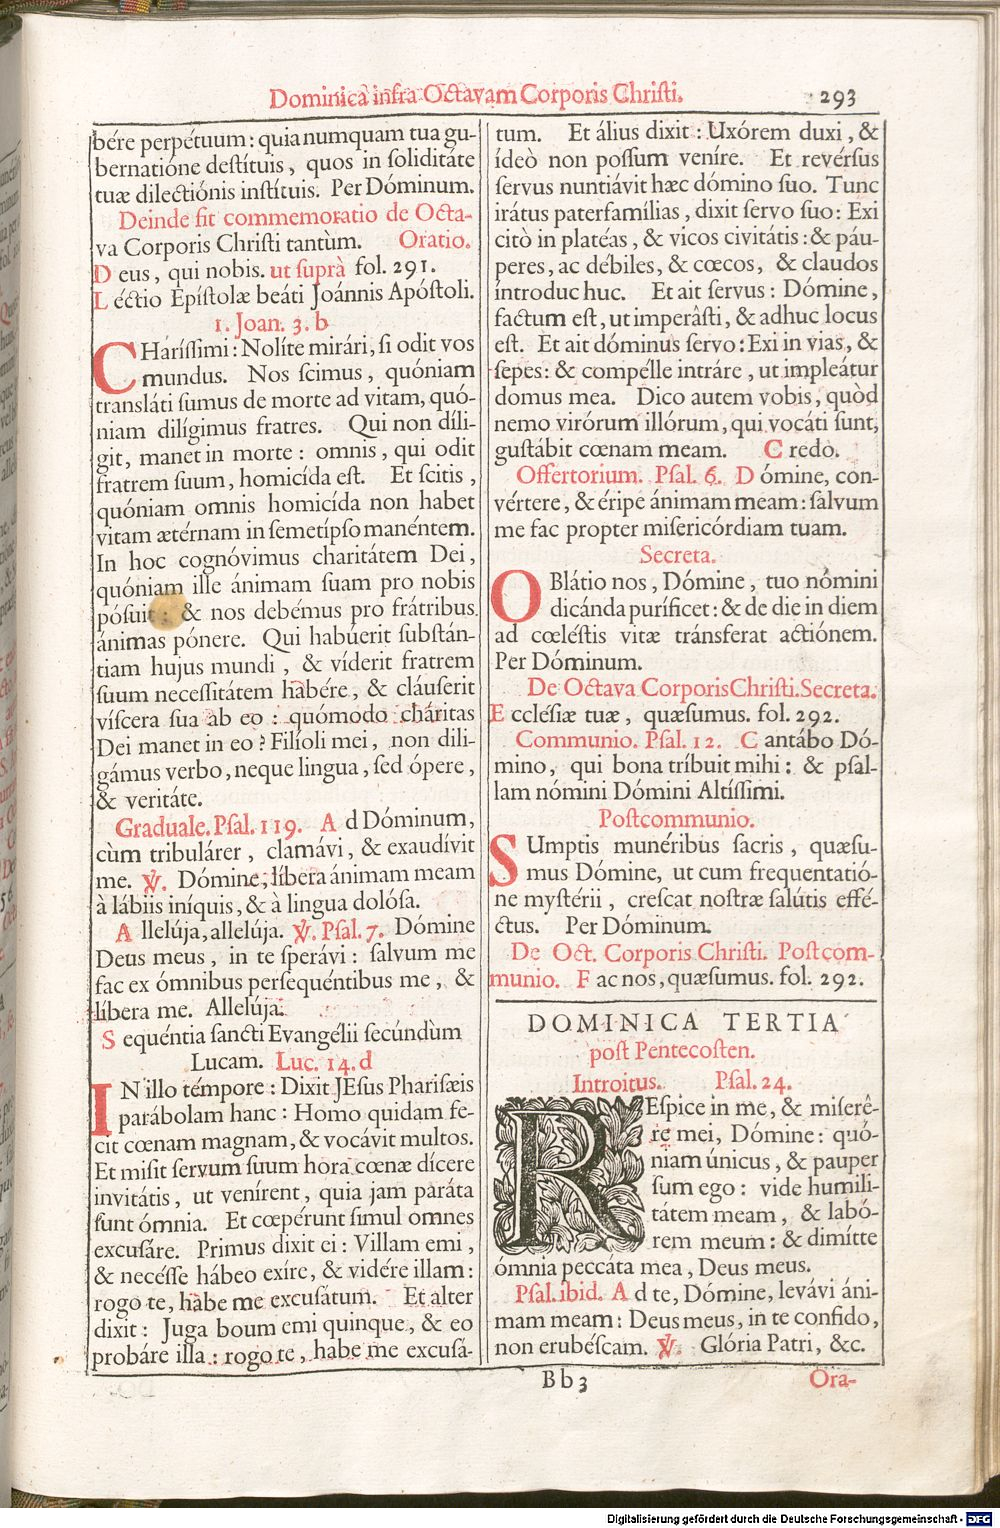 Dominica infra Octavam Corporis Christi. 293
bére perpétuum : quia numquam tua gu-
bernatióne destítuis, quos in soliditáte
tuæ dilectiónis instítuis. Per Dóminum.
Deinde fit commemoratio de Octa-
va Corporis Christi tantùm. Oratio.
Deus, qui nobis. ut suprà fol. 291.
Léctio Epístolæ beáti Joánnis Apóstoli.
1. Joan. 3. b
CHaríssimi : Nolíte mirári, si odit vos
mundus. Nos scimus, quóniam
transláti sumus de morte ad vitam, quó-
niam dilígimus fratres. Qui non díli-
git, manet in morte : omnis, qui odit
fratrem suum, homicída est. Et scitis,
quóniam omnis homicída non habet
vitam ætérnam in semetípso manéntem.
In hoc cognóvimus charitátem Dei,
quóniam ille ánimam suam pro nobis
pósuit : & nos debémus pro frátribus
ánimas pónere. Qui habúerit substán-
tiam hujus mundi, & víderit fratrem
suum necessitátem habére, & cláuserit
víscera sua ab eo : quómodo cháritas
Dei manet in eo ? Filíoli mei, non dili-
gámus verbo, neque lingua, sed ópere,
& veritáte.
Graduale. Psal. 119. Ad Dóminum,
cùm tribulárer, clamávi, & exaudívit
me. ℣. Dómine, líbera ánimam meam
à lábiis iníquis, & à lingua dolósa.
Allelúja, allelúja. ℣. Psal. 7. Dómine
Deus meus, in te sperávi : salvum me
fac ex ómnibus persequéntibus me, &
líbera me. Allelúja.
Sequéntia sancti Evangélii secúndùm
Lucam. Luc. 14. d
IN illo témpore : Dixit JEsus Pharisæis
parábolam hanc : Homo quidam fe-
cit cœnam magnam, & vocávit multos.
Et misit servum suum hora cœnæ dícere
invitátis, ut venírent, quia jam paráta
sunt ómnia. Et cœpérunt simul omnes
excusáre. Primus dixit ei : Villam emi,
& necésse hábeo exíre, & vidére illam :
rogo te, habe me excusátum. Et alter
dixit : Juga boum emi quinque, & eo
probáre illa : rogo te, habe me excusá-
tum. Et álius dixit : Uxórem duxi, &
ídeò non possum veníre. Et revérsus
servus nuntiávit hæc dómino suo. Tunc
irátus paterfamílias, dixit servo suo : Exi
citò in platéas, & vicos civitátis : & páu-
peres, ac débiles, & cœcos, & claudos
íntroduc huc. Et ait servus : Dómine,
factum est, ut imperâsti, & adhuc locus
est. Et ait dóminus servo : Exi in vias, &
sepes : & compélle intráre, ut impleátur
domus mea. Dico autem vobis, quòd
nemo virórum illórum, qui vocáti sunt,
gustábit cœnam meam. Credo.
Offertorium. Psal. 6. Dómine, con-
vértere, & éripe ánimam meam : salvum
me fac propter misericórdiam tuam.
Secreta.
OBlátio nos, Dómine, tuo nómini
dicánda puríficet : & de die in diem
ad cœléstis vitæ tránsferat actiónem.
Per Dóminum.
De Octava Corporis Christi. Secreta.
Ecclésiæ tuæ, quæsumus. fol. 292.
Communio. Psal. 12. Cantábo Dó-
mino, qui bona tríbuit mihi : & psal-
lam nómini Dómini Altíssimi.
Postcommunio.
SUmptis munéribus sacris, quæsu-
mus Dómine, ut cum frequentatió-
ne mystérii, crescat nostræ salútis effé-
ctus. Per Dóminum.
De Oct. Corporis Christi. Postcom-
munio. Fac nos, quæsumus. fol. 292.
DOMINICA TERTIA
post Pentecosten.
Introitus. Psal. 24.
REspice in me, & miserê-
re mei, Dómine : quó-
niam únicus, & pauper
sum ego : vide humili-
tátem meam, & labó-
rem meum : & dimítte
ómnia peccáta mea, Deus meus.
Psal. ibid. Ad te, Dómine, levávi áni-
mam meam : Deus meus, in te confído,
non erubéscam. ℣. Glória Patri, &c.
Bb3 Ora-
Digitalisierung gefördert durch die Deutsche Forschungsgemeinschaft - DFG